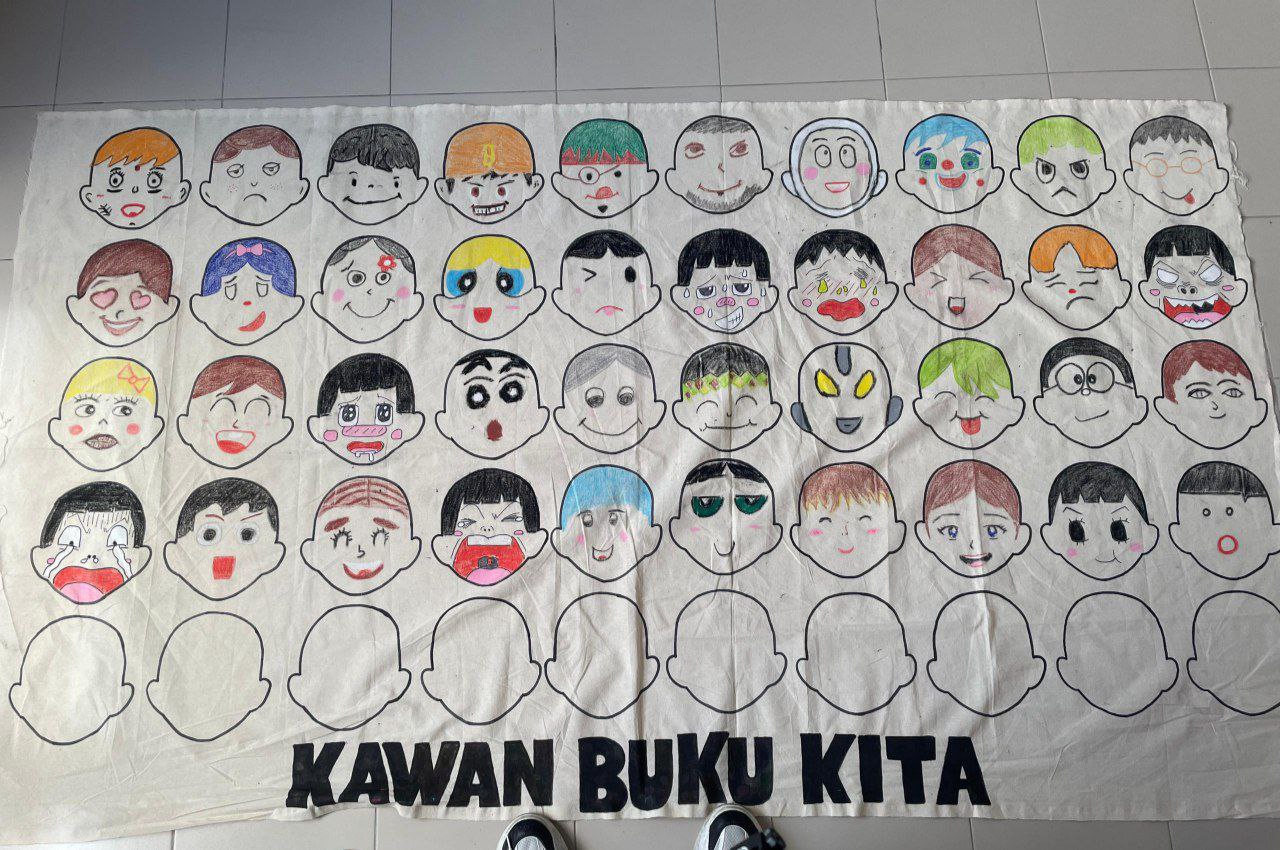 g
KAWAN BUKU KITA